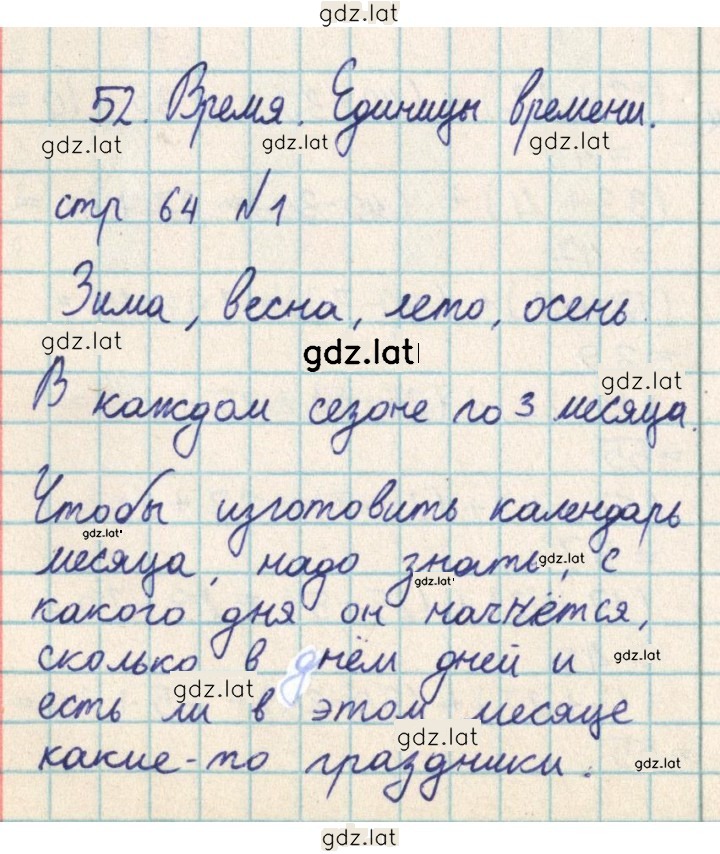 gdz.lat
52. Время. Единицы времени.
gdz.lat gdz.lat gdz.lat
стр 64 №1
Зима, весна, лето, осень.
gdz.lat gdz.lat
gdz.lat
В каждом сезоне по 3 месяца.
Чтобы изготовить календарь
gdz.lat
месяца, надо знать, с
gdz.lat gdz.lat
какого дня он начнётся,
сколько в днём дней и
gdz.lat gdz.lat
есть ли в этом месяце
gdz.lat gdz.lat
какие-то праздники.
gdz.lat